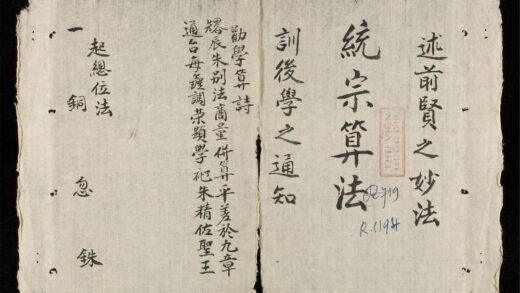 述前賢之妙法
統宗算法
訓後學之通知
R.1194
勸學算詩
辰朱别法商量併算平差於九章
通台每 調榮顯學 朱精佐聖王
起總位法
一 銅 忽 銖